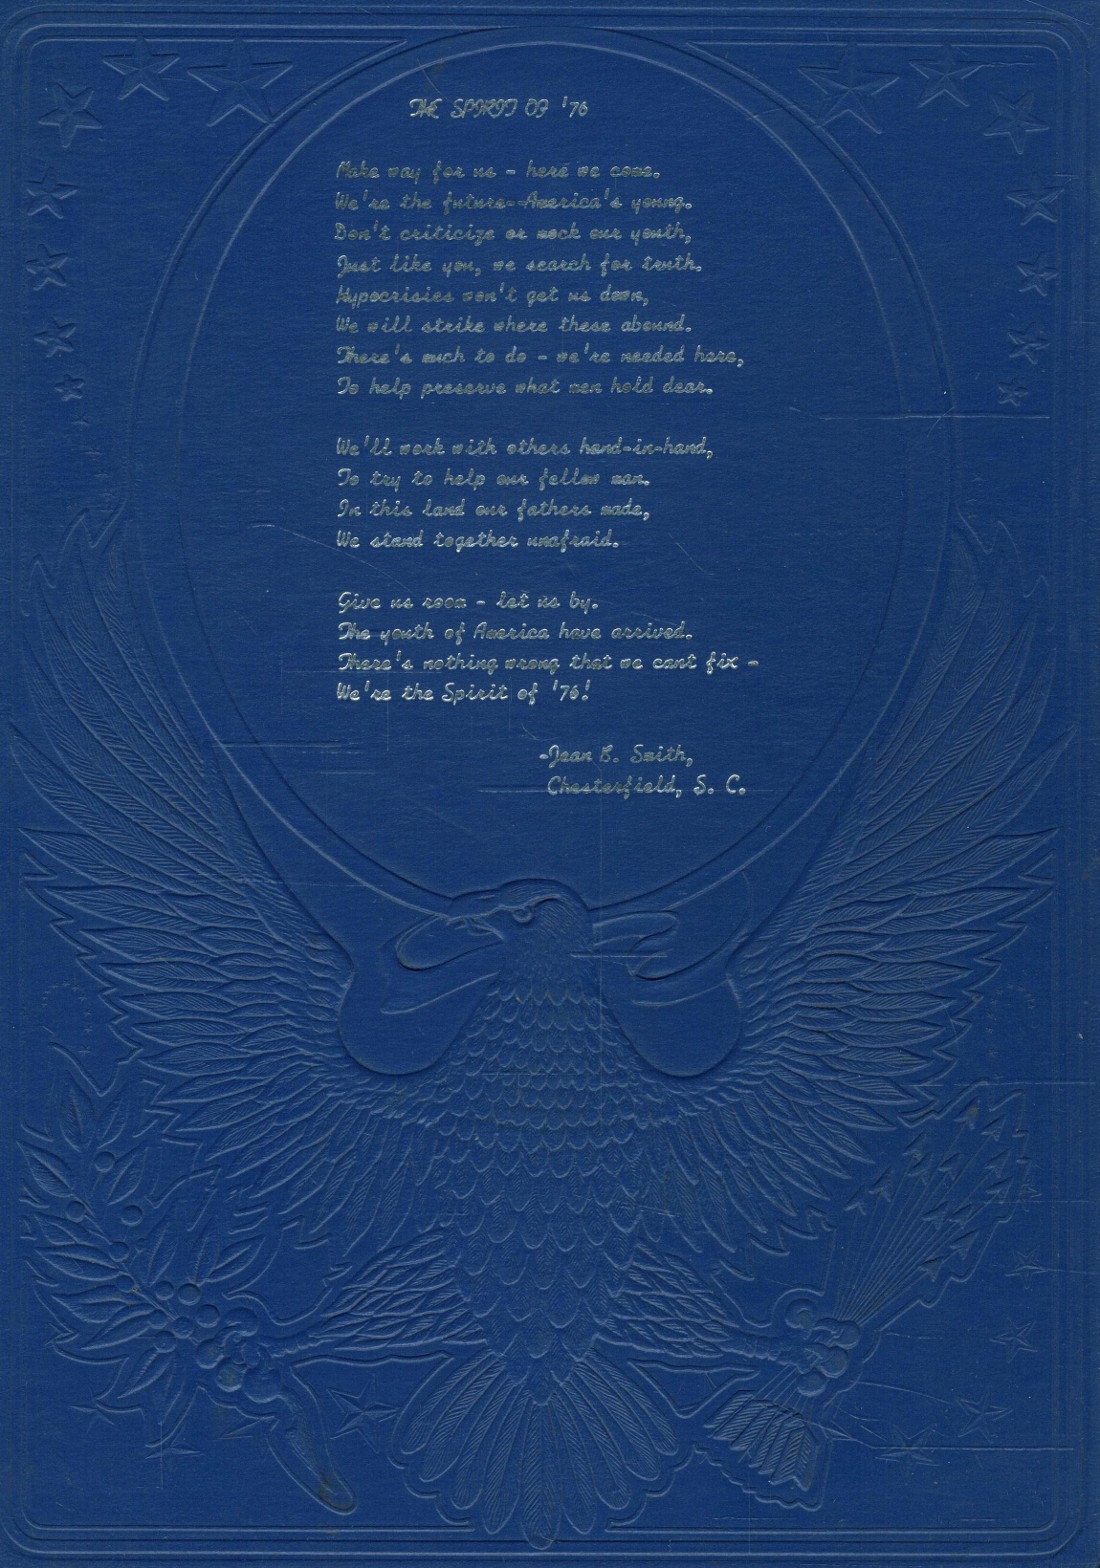 THE SPIRIT OF '76
Make way for us - here we come.
We're the future--America's young.
Don't criticize or mock our youth,
Just like you, we search for truth.
Hypocrisies won't get us down,
We will strike where these abound.
There's much to do - we're needed here,
To help preserve what men hold dear.
We'll work with others hand-in-hand,
To try to help our fellow man.
In this land our fathers made,
We stand together unafraid.
Give us room - let us by.
The youth of America have arrived.
There's nothing wrong that we cant fix -
We're the Spirit of '76!
-Jean E. Smith,
Chesterfield, S. C.